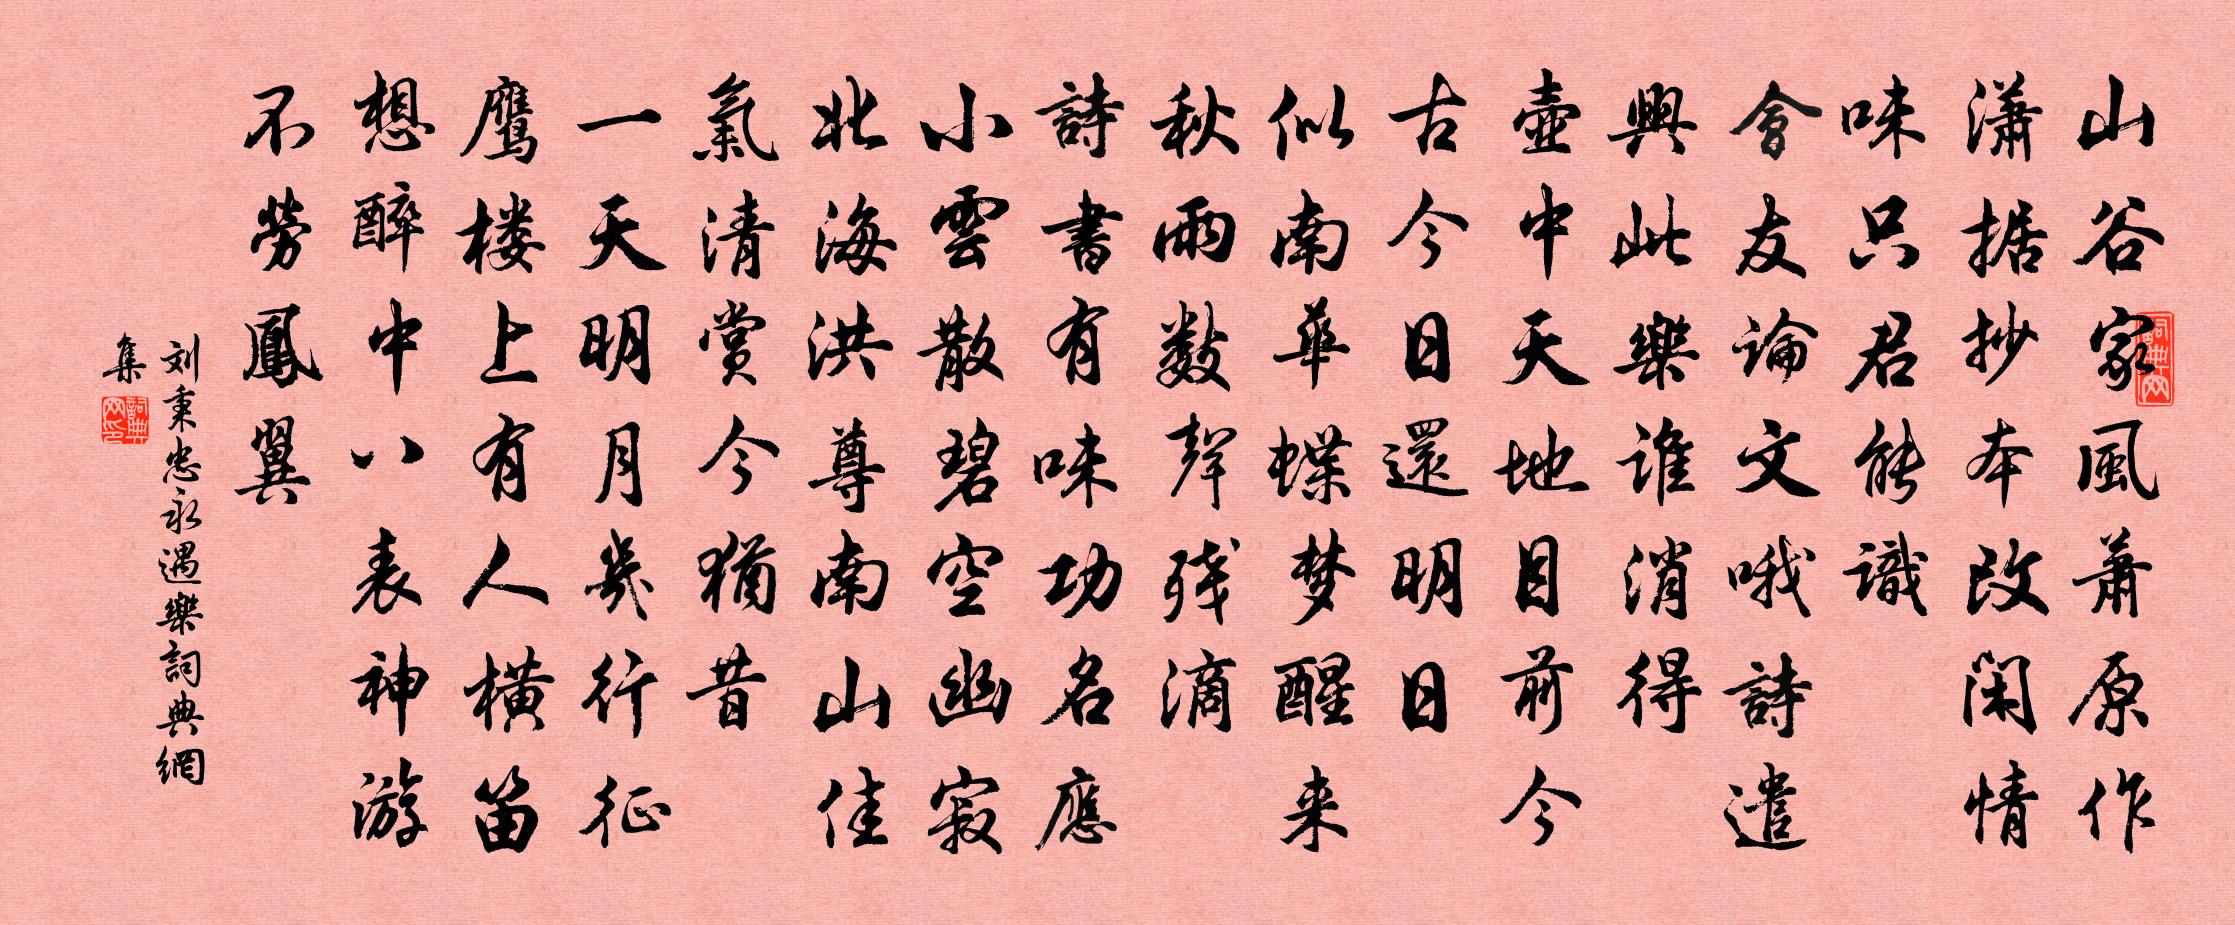 山谷家風萧原作
潇据抄本改闲情
味只君能識
會友論文哦詩遣
興此樂谁消得
壺中天地目前今
古今日還明日
似南華蝶梦醒来
秋雨数聲残滴
詩書有味功名應
小雲散碧空幽寂
北海洪尊南山佳
氣清賞今猶昔
一天明月幾行征
鹰楼上有人横笛
想醉中八表神游
不勞鳳翼
刘秉忠永遇樂詞典網
集
詞典网
詞典网印